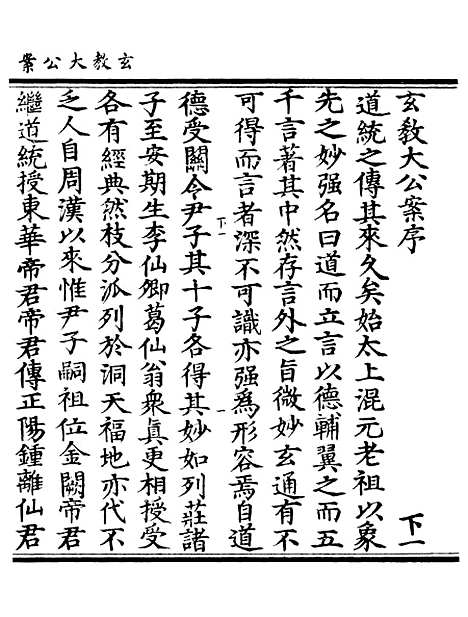 玄教大公案
玄教大公案序
下一
道統之傳其來久矣始太上混元老祖以象
先之妙强名曰道而立言以德輔翼之而五
千言著其中然存言外之旨微妙玄通有不
可得而言者深不可識亦强為形容焉自道
下一
德受關令尹子其十子各得其妙如列莊諸
子至安期生李仙卿葛仙翁衆真更相授受
各有經典然枝分派列於洞天福地亦代不
乏人自周漢以來惟尹子嗣祖位金闕帝君
繼道統授東華帝君帝君傳正陽鍾離仙君